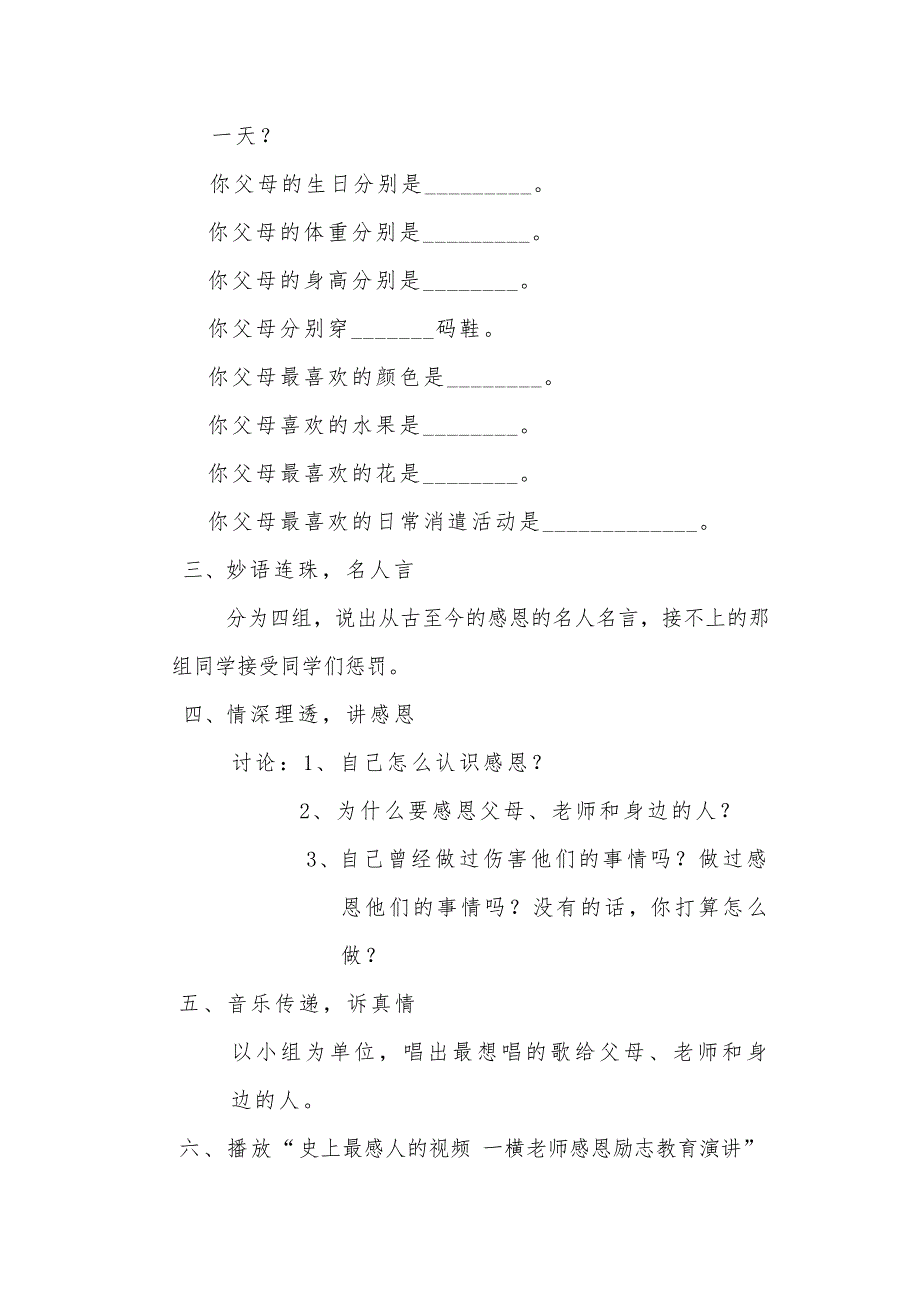 一天？
你父母的生日分别是_________。
你父母的体重分别是_________。
你父母的身高分别是________。
你父母分别穿_______码鞋。
你父母最喜欢的颜色是________。
你父母喜欢的水果是________。
你父母最喜欢的花是________。
你父母最喜欢的日常消遣活动是_____________。
三、妙语连珠，名人言
分为四组，说出从古至今的感恩的名人名言，接不上的那
组同学接受同学们惩罚。
四、情深理透，讲感恩
讨论：1、自己怎么认识感恩？
2、为什么要感恩父母、老师和身边的人？
3、自己曾经做过伤害他们的事情吗？做过感
恩他们的事情吗？没有的话，你打算怎么
做？
五、音乐传递，诉真情
以小组为单位，唱出最想唱的歌给父母、老师和身
边的人。
六、播放“史上最感人的视频 一横老师感恩励志教育演讲”